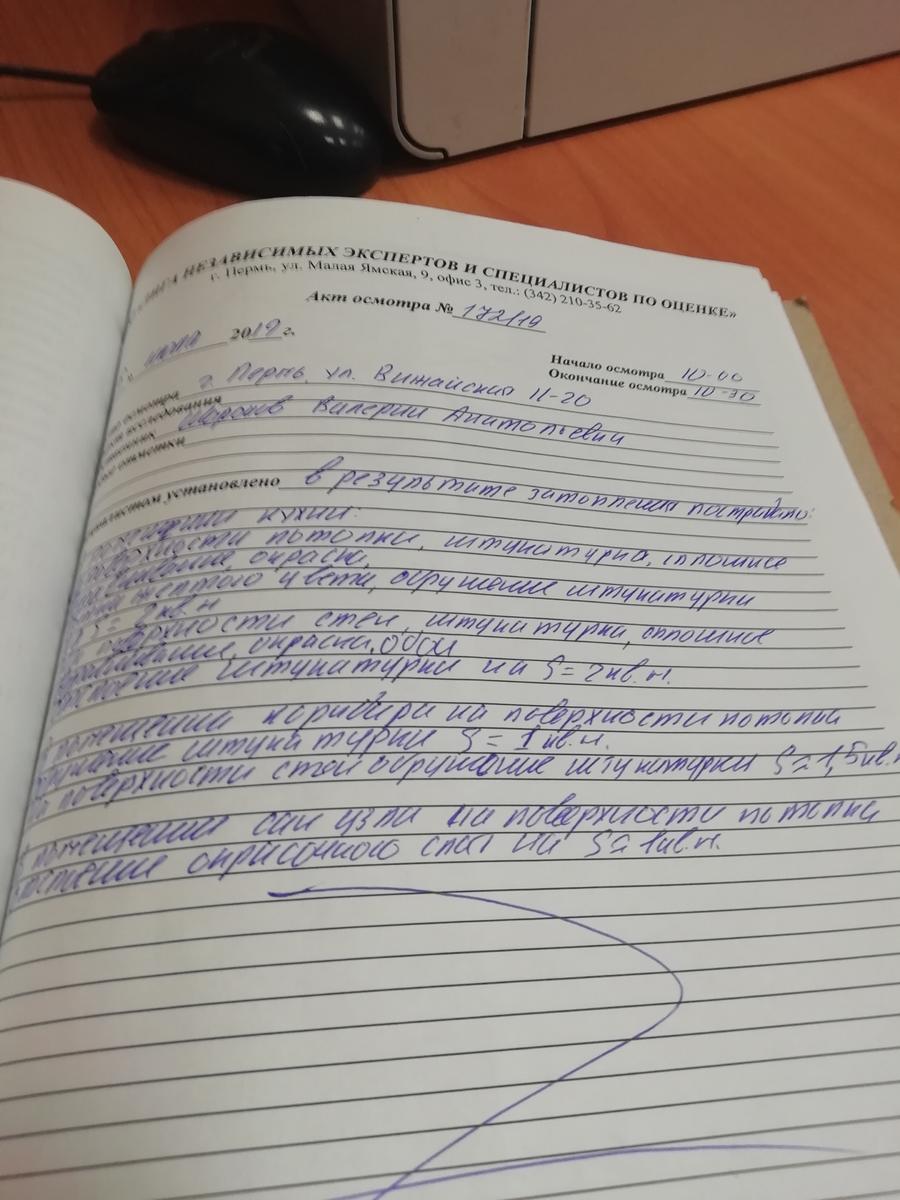 НЕЗАВИСИМЫХ ЭКСПЕРТОВ И СПЕЦИАЛИСТОВ ПО ОЦЕНКЕ»
г. Пермь, ул. Малая Ямская, 9, офис 3, тел.: (342) 210-35-62
Акт осмотра № 172/19
2019 г.
Начало осмотра 10-00
Окончание осмотра 10-30
осмотра г. Пермь, ул. Вижайская 11-20
исследования
Валерий Анатольевич
отметки
установлено в результате затопления пострадало:
кухни:
поверхности потолка, штукатурка, сплошное
окраска,
желтого цвета, обрушение штукатурки
S = 2 кв.м
поверхности стен, штукатурка, сплошное
окраска, обои
штукатурки на S = 2 кв.м.
помещении коридора на поверхности потолка
штукатурки S = 1 кв.м.
поверхности стен обрушение штукатурки S = 1,5 кв.м
помещении сан узла на поверхности потолка
окрасочного слоя на S = 1 кв.м.